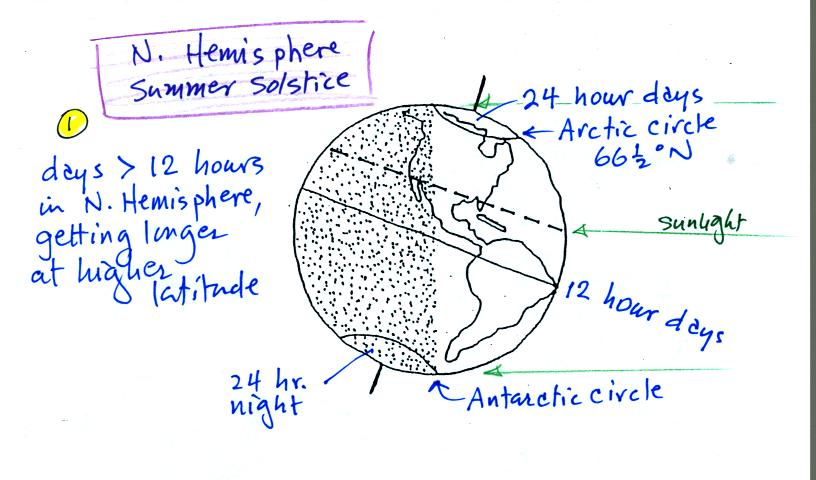 N. Hemisphere
Summer Solstice
1
days > 12 hours
in N. Hemisphere,
getting longer
at higher
latitude
24 hour days
Arctic circle
66½°N
sunlight
12 hour days
24 hr.
night
Antarctic circle